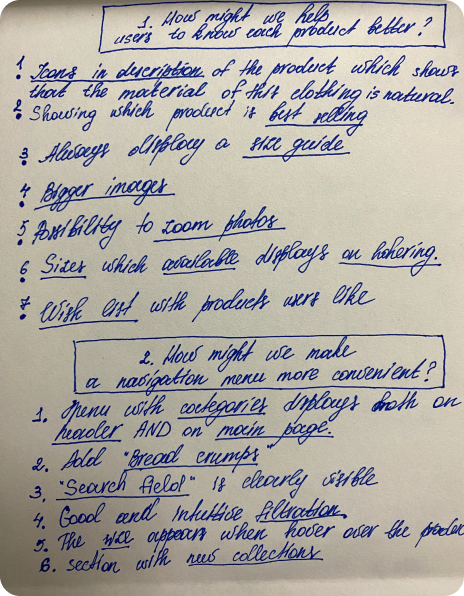 1. How might we help
users to know each product better?
1. Icons in description of the product which shows
that the material of this clothing is natural.
2. Showing which product is best selling
3. Always display a size guide
4. Bigger images
5. Possibility to zoom photos
6. Sizes which available displays on hohering.
7. Wish list with products users like
2. How might we make
a navigation menu more convenient?
1. Menu with categories displays both on
header AND on main page.
2. Add "Bread crumps"
3. "Search field" is clearly visible
4. Good and intuitive filtration
5. The appears when hover over the
6. section with new collections